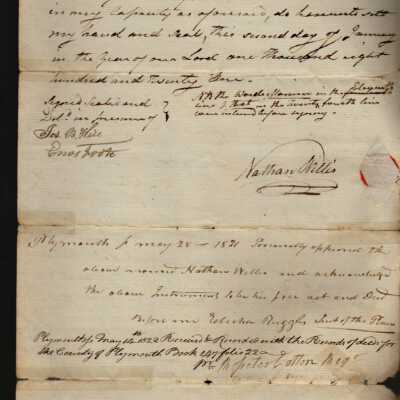 in my Capacity as aforesaid, do hereunto sett
my hand and Seal, this second day of January
in the Year of our Lord one thousand eight
hundred and twenty
Signed Sealed and
Deld. in presence of
Jos. B. Hill
Enos
NB the words in the
line & that in the twenty fourth line
were interlined before signing.
Nathan Willis
Plymouth ss May 28 - 1821 Personally appeared the
above named Nathan Willis and acknowledged
the above Instrument to be his free act and Deed
Before me Ruggles Just of the Peace
Plymouth ss May 14th 1822 Received & Recorded with the Records of deeds for
the County of Plymouth Book 147 folio 220
Pr Rossiter Cotton Regr.